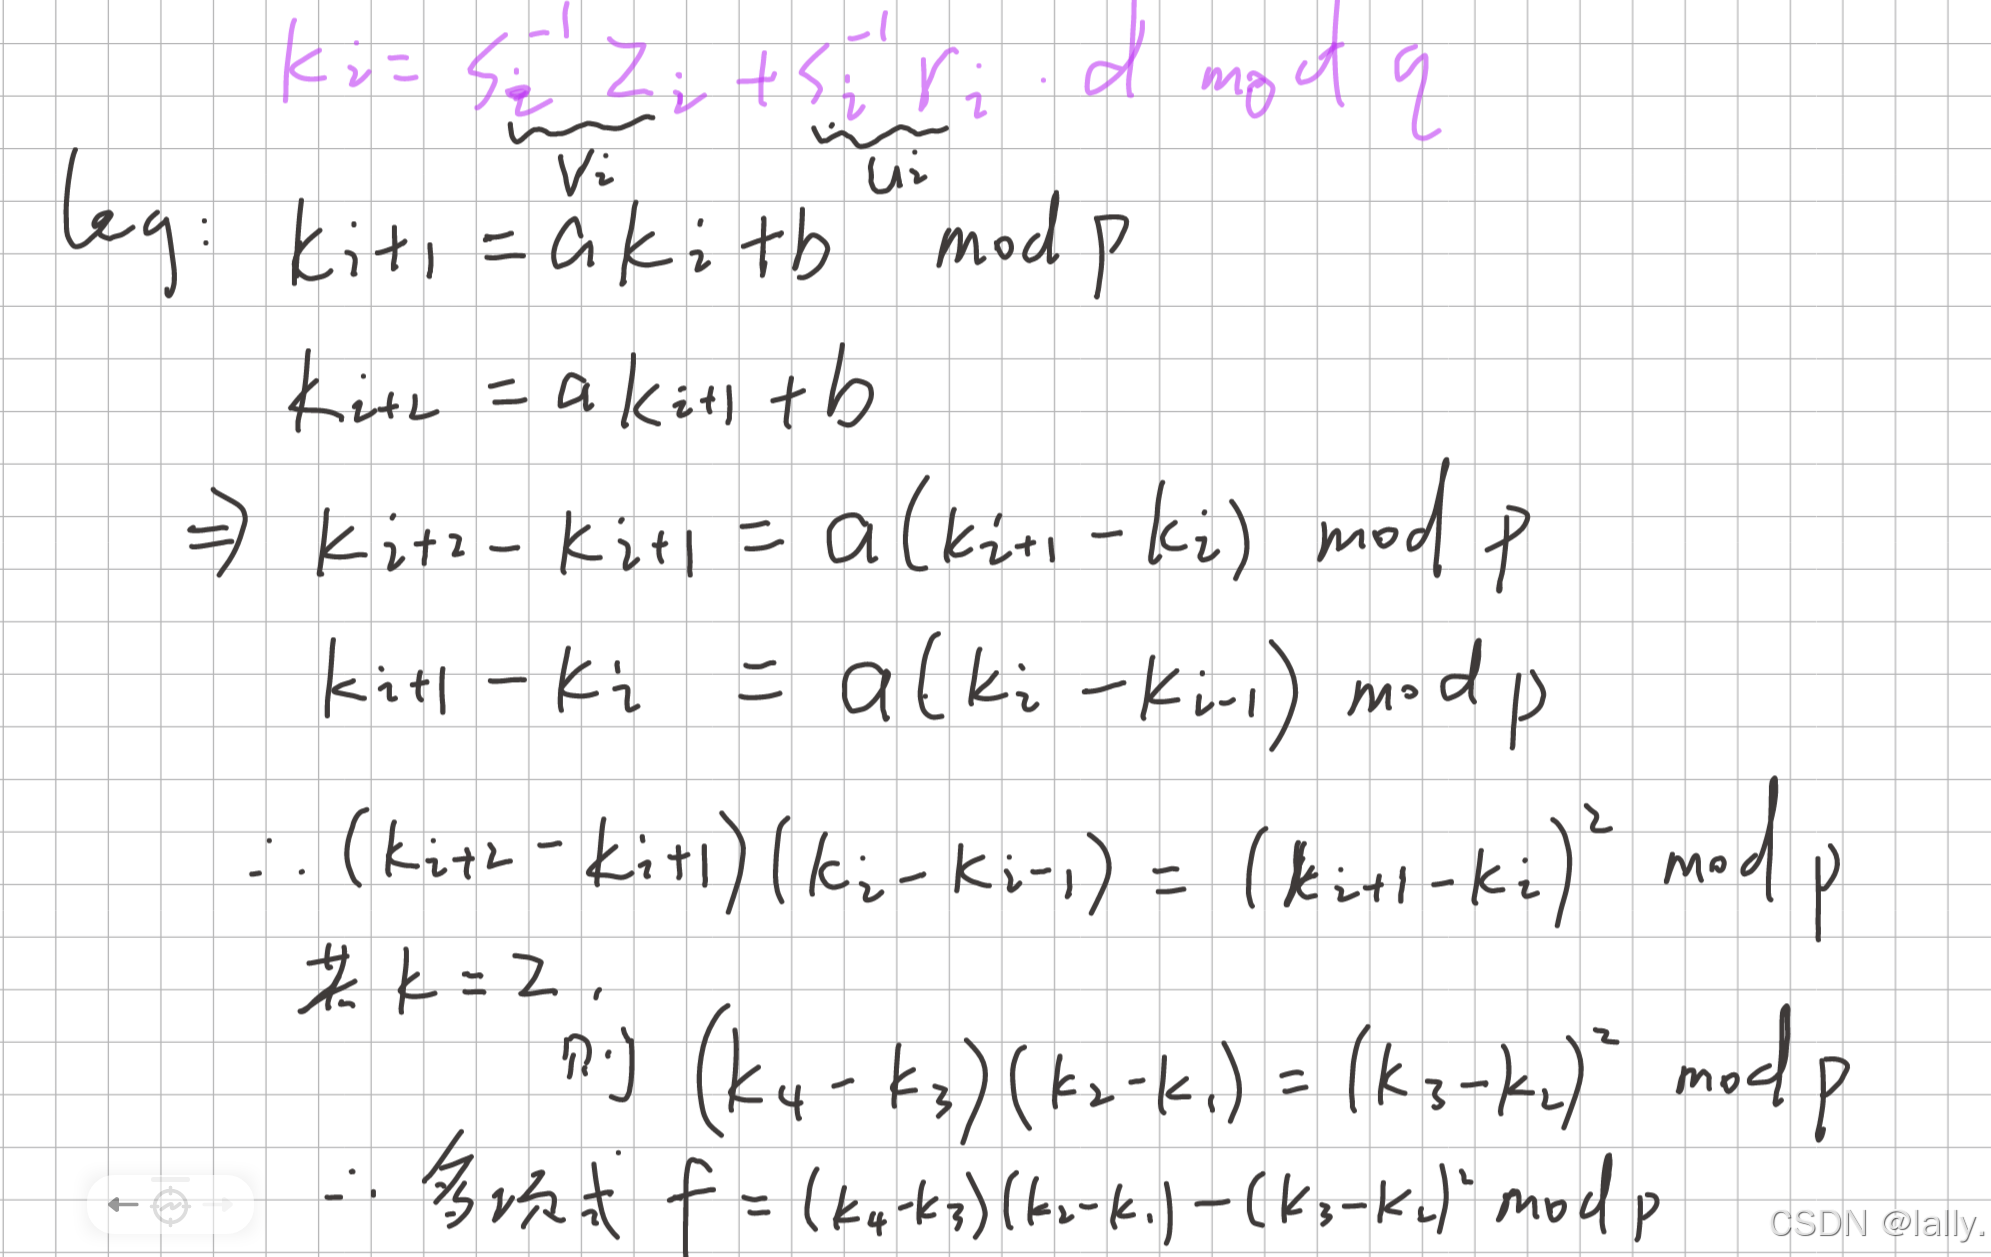 kᵢ = sᵢ⁻¹ zᵢ + sᵢ⁻¹ rᵢ · d mod q
vᵢ uᵢ
lcg: kᵢ₊₁ = akᵢ + b mod p
kᵢ₊₂ = akᵢ₊₁ + b
⇒ kᵢ₊₂ − kᵢ₊₁ = a(kᵢ₊₁ − kᵢ) mod p
kᵢ₊₁ − kᵢ = a(kᵢ − kᵢ₋₁) mod p
∴ (kᵢ₊₂ − kᵢ₊₁)(kᵢ − kᵢ₋₁) = (kᵢ₊₁ − kᵢ)² mod p
若 k = 2,
则 (k₄ − k₃)(k₂ − k₁) = (k₃ − k₂)² mod p
∴ 多项式 f = (k₄ − k₃)(k₂ − k₁) − (k₃ − k₂)² mod p
CSDN @lally.